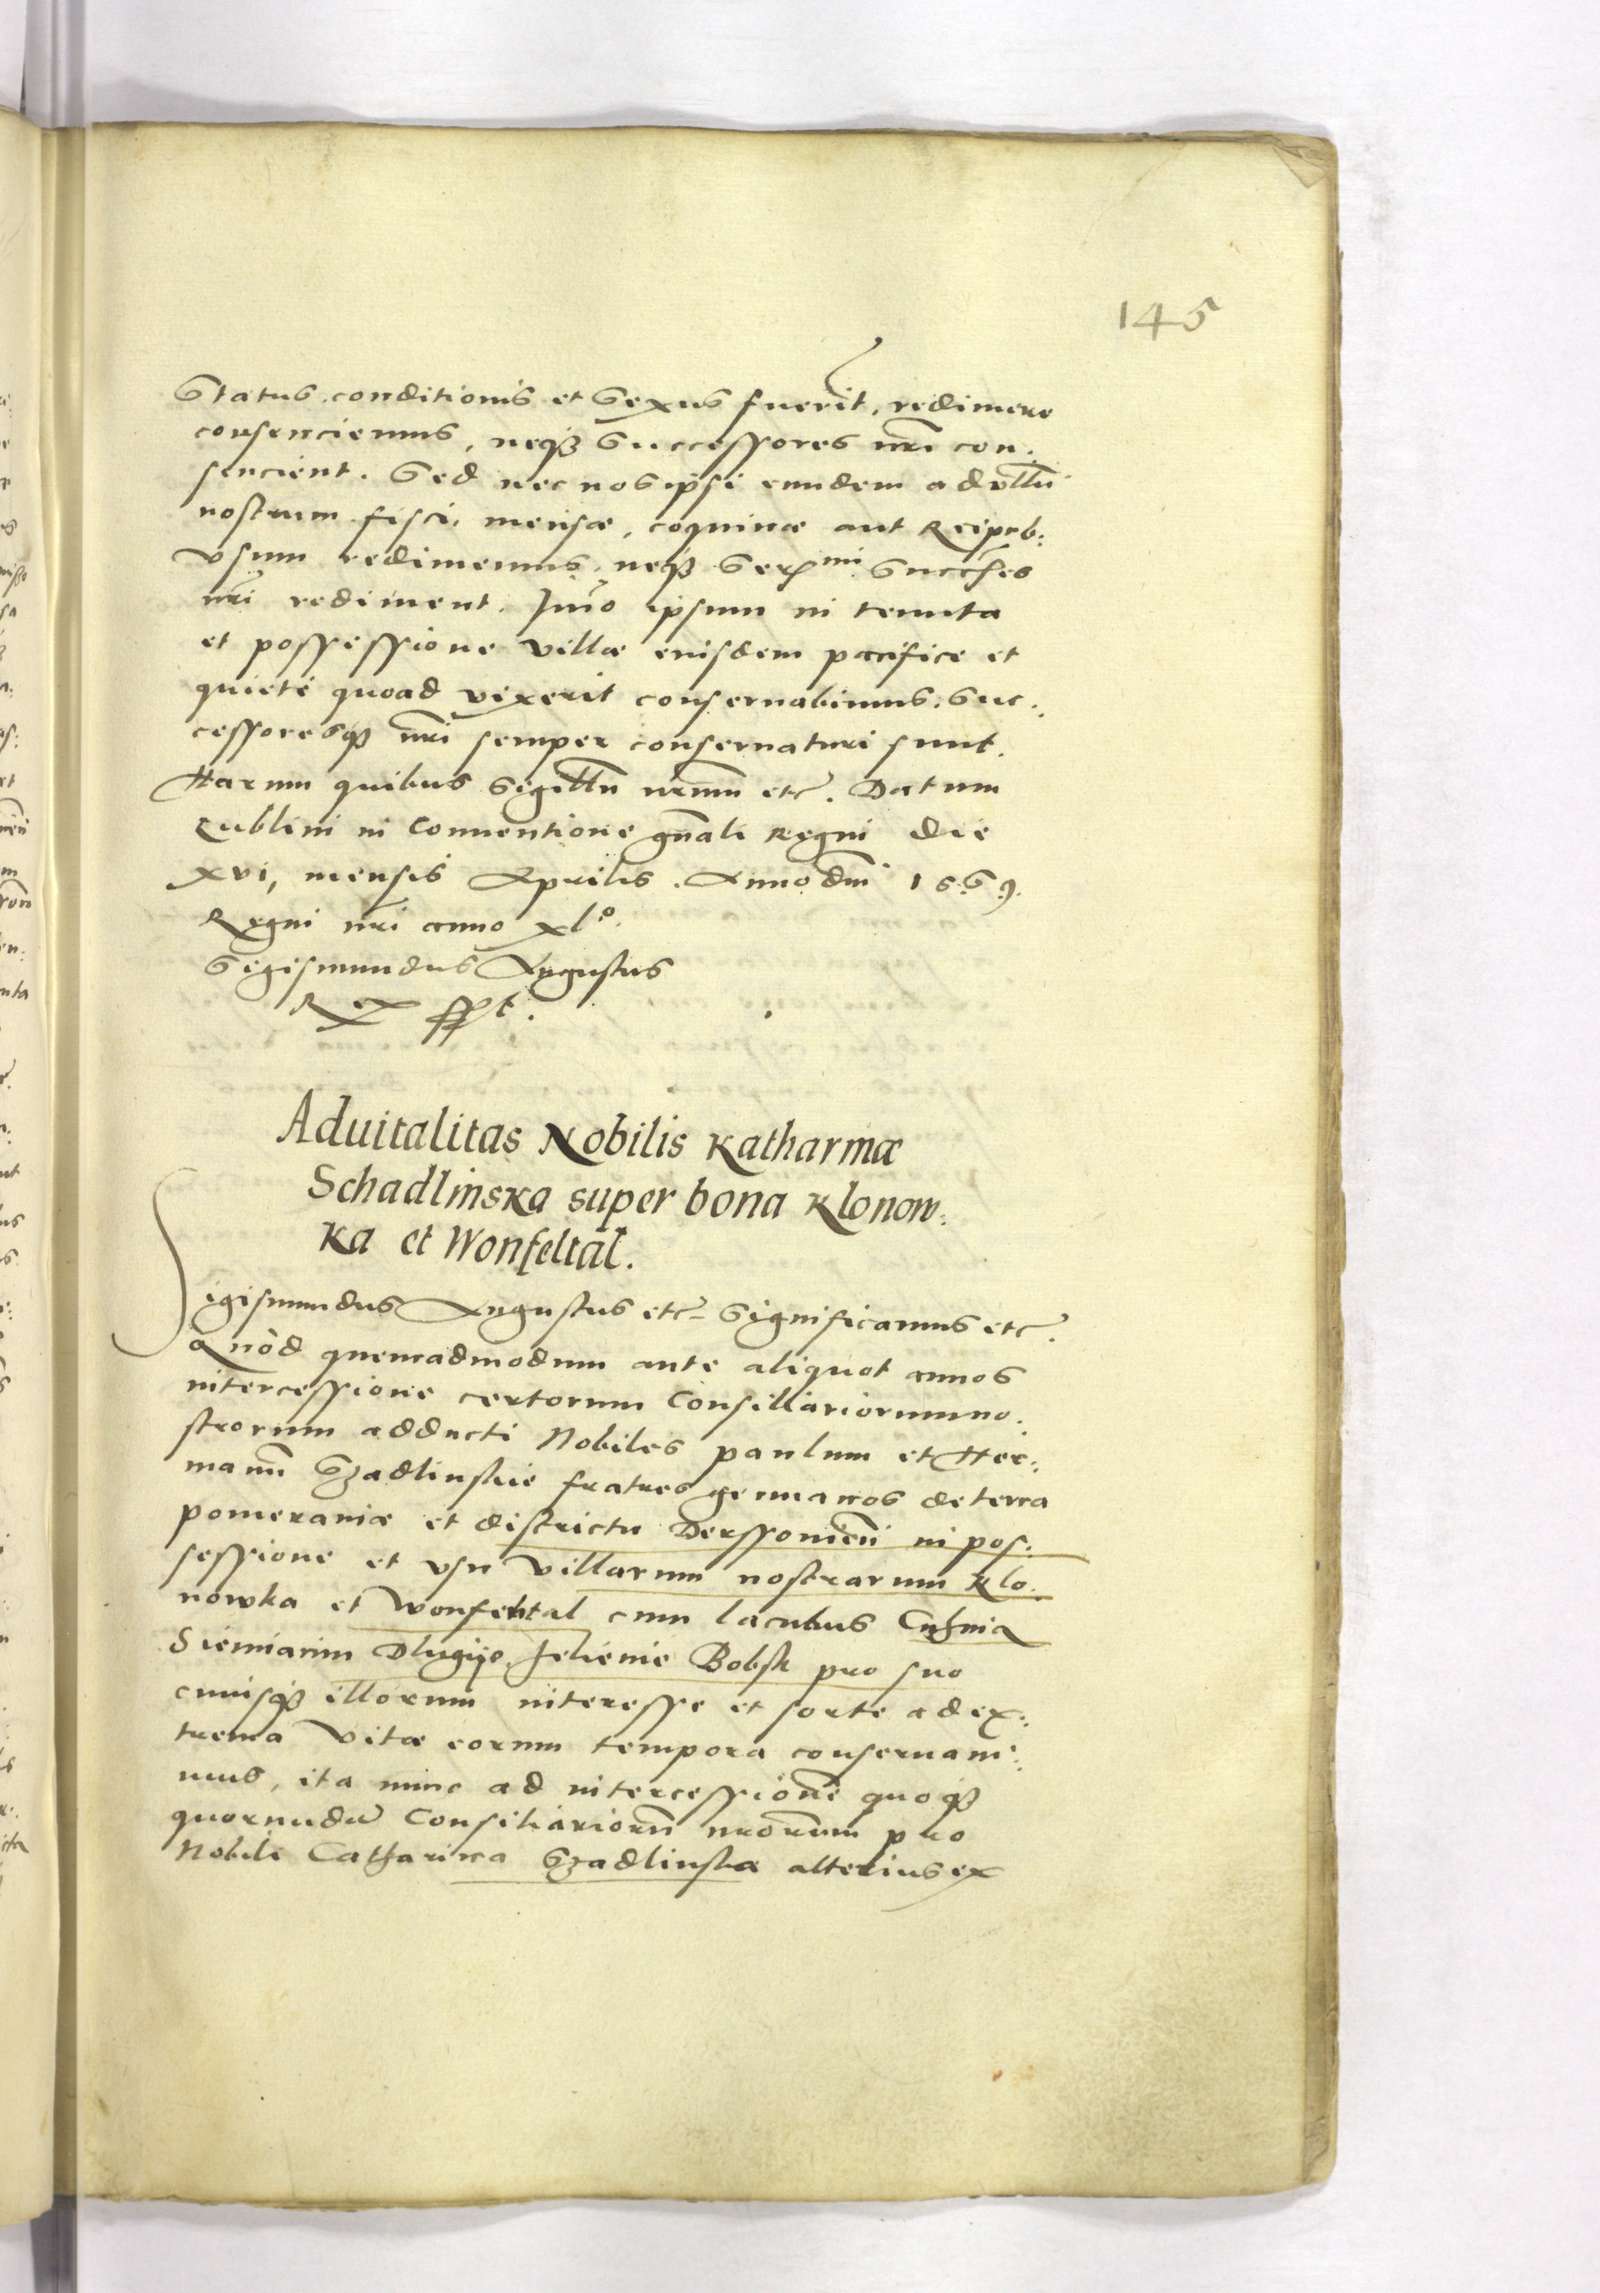 145
Status, conditionis et Sexus fuerit, redimere
consenciemus, neqз Successores nrĩ con:
sencient. Sed nec nos ipsi eundem ad ullũ
nostrum fisci, mensæ, coquinæ aut Reipub:
usum redimemus, neqз Serᵐⁱ Succes̃ses
nrĩ rediment. Im̃o ipsum in tenuta
et possessione villæ eiusdem pacifice et
quiete quoad vixerit conseruabimus: Suc:
cessoresqз nrĩ semper conseruaturi sunt.
Harum quibus Sigillũ nrũm etc. Datum
Lublini in Conuentione gñali Regni die
xvi, mensis Aprilis. Anno dnĩ 1569.
Regni nrĩ anno xlº.
Sigismundus Augustus
Rex sspt.
Aduitalitas Nobilis Katharinæ
Schadlinska super bona Klonow:
ka et Wonfeltal.
Sigismundus Augustus etc. Significamus etc.
Quod quemadmodum ante aliquot annos
intercessione certorum Consiliariorum no:
strorum adducti Nobiles Paulum et Her:
manũ Szadlinskie fratres germanos de terra
Pomeraniæ et districtu Derssouien̄ in pos:
sessione et usu Villarum nostrarum Klo:
nowka et Wonfeltal cum lacubus
Dlugije Jelienie Bobsk pro suo
cuiusqз illorum interesse et sorte ad ex:
trema Vitæ eorum tempora conseruaui:
mus, ita nunc ad intercessionẽ quoqз
quorundã Consiliariorũ nrõrum pro
Nobili Catharina Szadlinska alterius ex